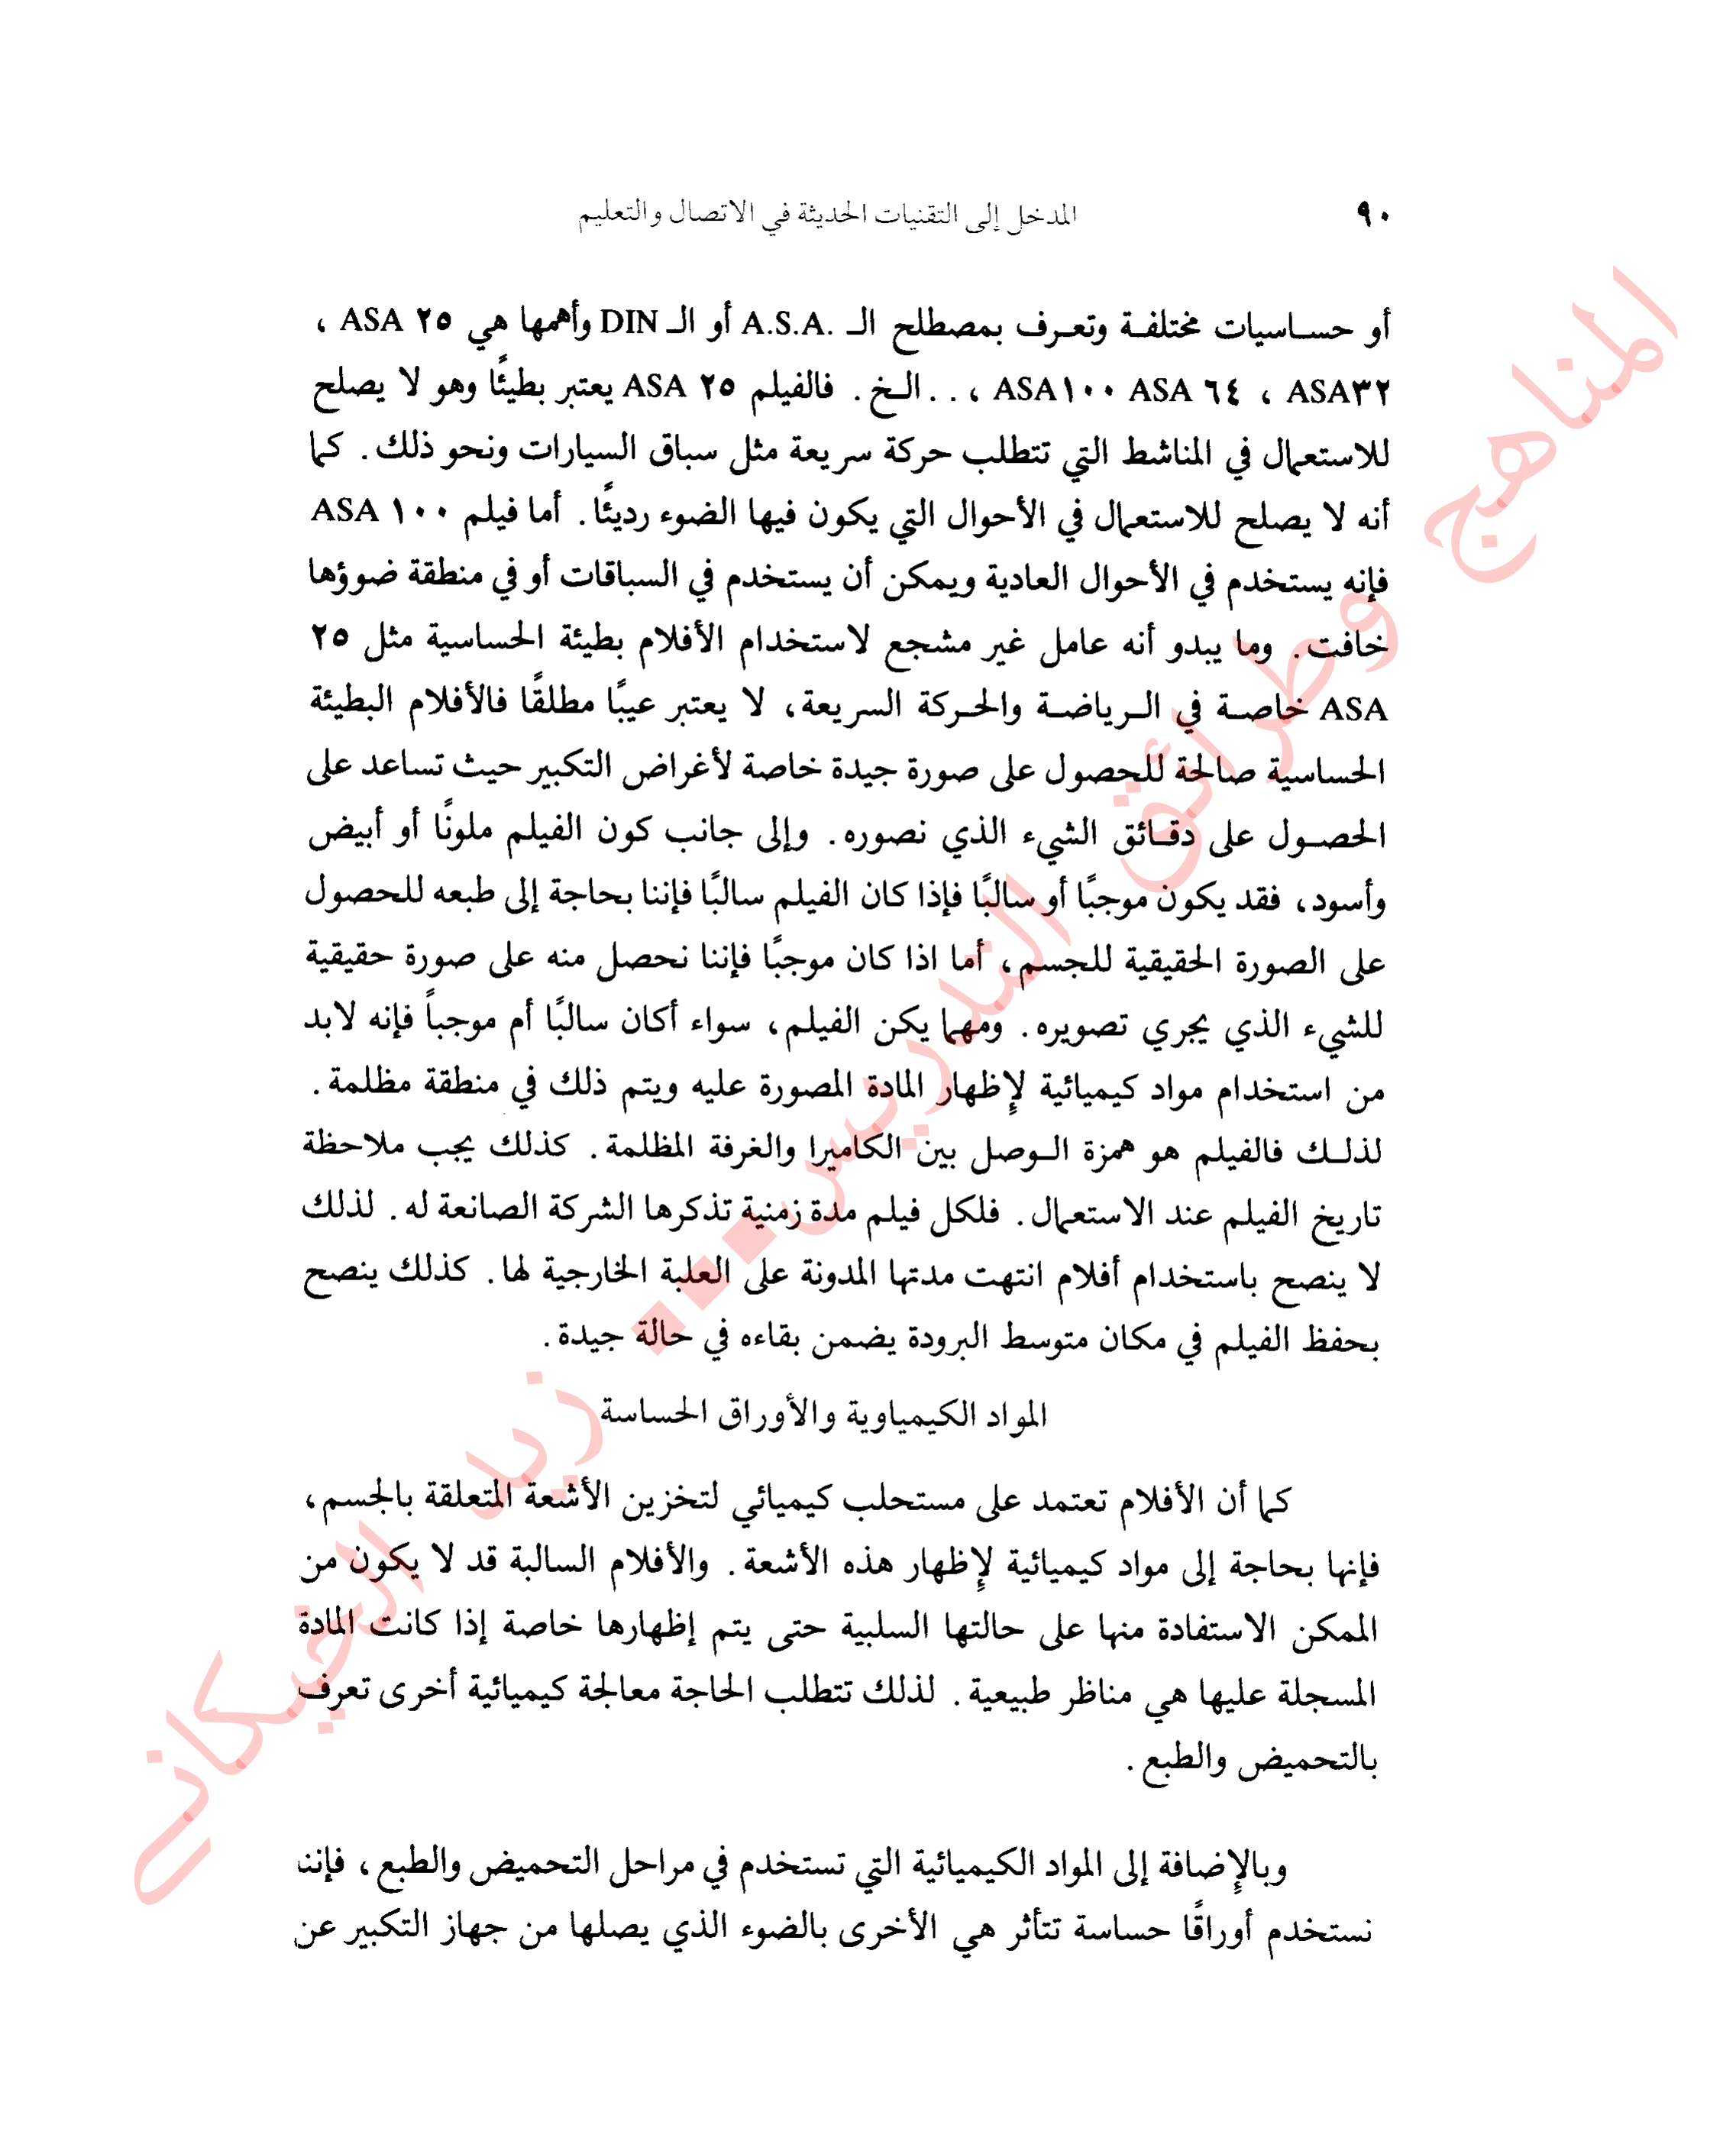 ٩٠
المدخل إلى التقنيات الحديثة في الاتصال والتعليم
أو حساسيات مختلفة وتعرف بمصطلح الـ .A.S.A أو الـ DIN وأهمها هي ٢٥ ASA ،
ASA٣٢ ، ٦٤ ASA ASA١٠٠ ، . . الخ . فالفيلم ٢٥ ASA يعتبر بطيئًا وهو لا يصلح
للاستعمال في المناشط التي تتطلب حركة سريعة مثل سباق السيارات ونحو ذلك . كما
أنه لا يصلح للاستعمال في الأحوال التي يكون فيها الضوء رديئًا . أما فيلم ١٠٠ ASA
فإنه يستخدم في الأحوال العادية ويمكن أن يستخدم في السباقات أو في منطقة ضوؤها
خافت . وما يبدو أنه عامل غير مشجع لاستخدام الأفلام بطيئة الحساسية مثل ٢٥
ASA خاصة في الرياضة والحركة السريعة ، لا يعتبر عيبًا مطلقًا فالأفلام البطيئة
الحساسية صالحة للحصول على صورة جيدة خاصة لأغراض التكبير حيث تساعد على
الحصول على دقائق الشيء الذي نصوره . وإلى جانب كون الفيلم ملونًا أو أبيض
وأسود ، فقد يكون موجبًا أو سالبًا فإذا كان الفيلم سالبًا فإننا بحاجة إلى طبعه للحصول
على الصورة الحقيقية للجسم ، أما اذا كان موجبًا فإننا نحصل منه على صورة حقيقية
للشيء الذي يجري تصويره . ومهما يكن الفيلم ، سواء أكان سالبًا أم موجباً فإنه لابد
من استخدام مواد كيميائية لإظهار المادة المصورة عليه ويتم ذلك في منطقة مظلمة .
لذلك فالفيلم هو همزة الوصل بين الكاميرا والغرفة المظلمة . كذلك يجب ملاحظة
تاريخ الفيلم عند الاستعمال . فلكل فيلم مدة زمنية تذكرها الشركة الصانعة له . لذلك
لا ينصح باستخدام أفلام انتهت مدتها المدونة على العلبة الخارجية لها . كذلك ينصح
بحفظ الفيلم في مكان متوسط البرودة يضمن بقاءه في حالة جيدة .
المواد الكيمياوية والأوراق الحساسة
كما أن الأفلام تعتمد على مستحلب كيميائي لتخزين الأشعة المتعلقة بالجسم ،
فإنها بحاجة إلى مواد كيميائية لإظهار هذه الأشعة . والأفلام السالبة قد لا يكون من
الممكن الاستفادة منها على حالتها السلبية حتى يتم إظهارها خاصة إذا كانت المادة
المسجلة عليها هي مناظر طبيعية . لذلك تتطلب الحاجة معالجة كيميائية أخرى تعرف
بالتحميض والطبع .
وبالإضافة إلى المواد الكيميائية التي تستخدم في مراحل التحميض والطبع ، فإننا
نستخدم أوراقًا حساسة تتأثر هي الأخرى بالضوء الذي يصلها من جهاز التكبير عن
المناهج وطرائق التدريس... زيد الخيكاني